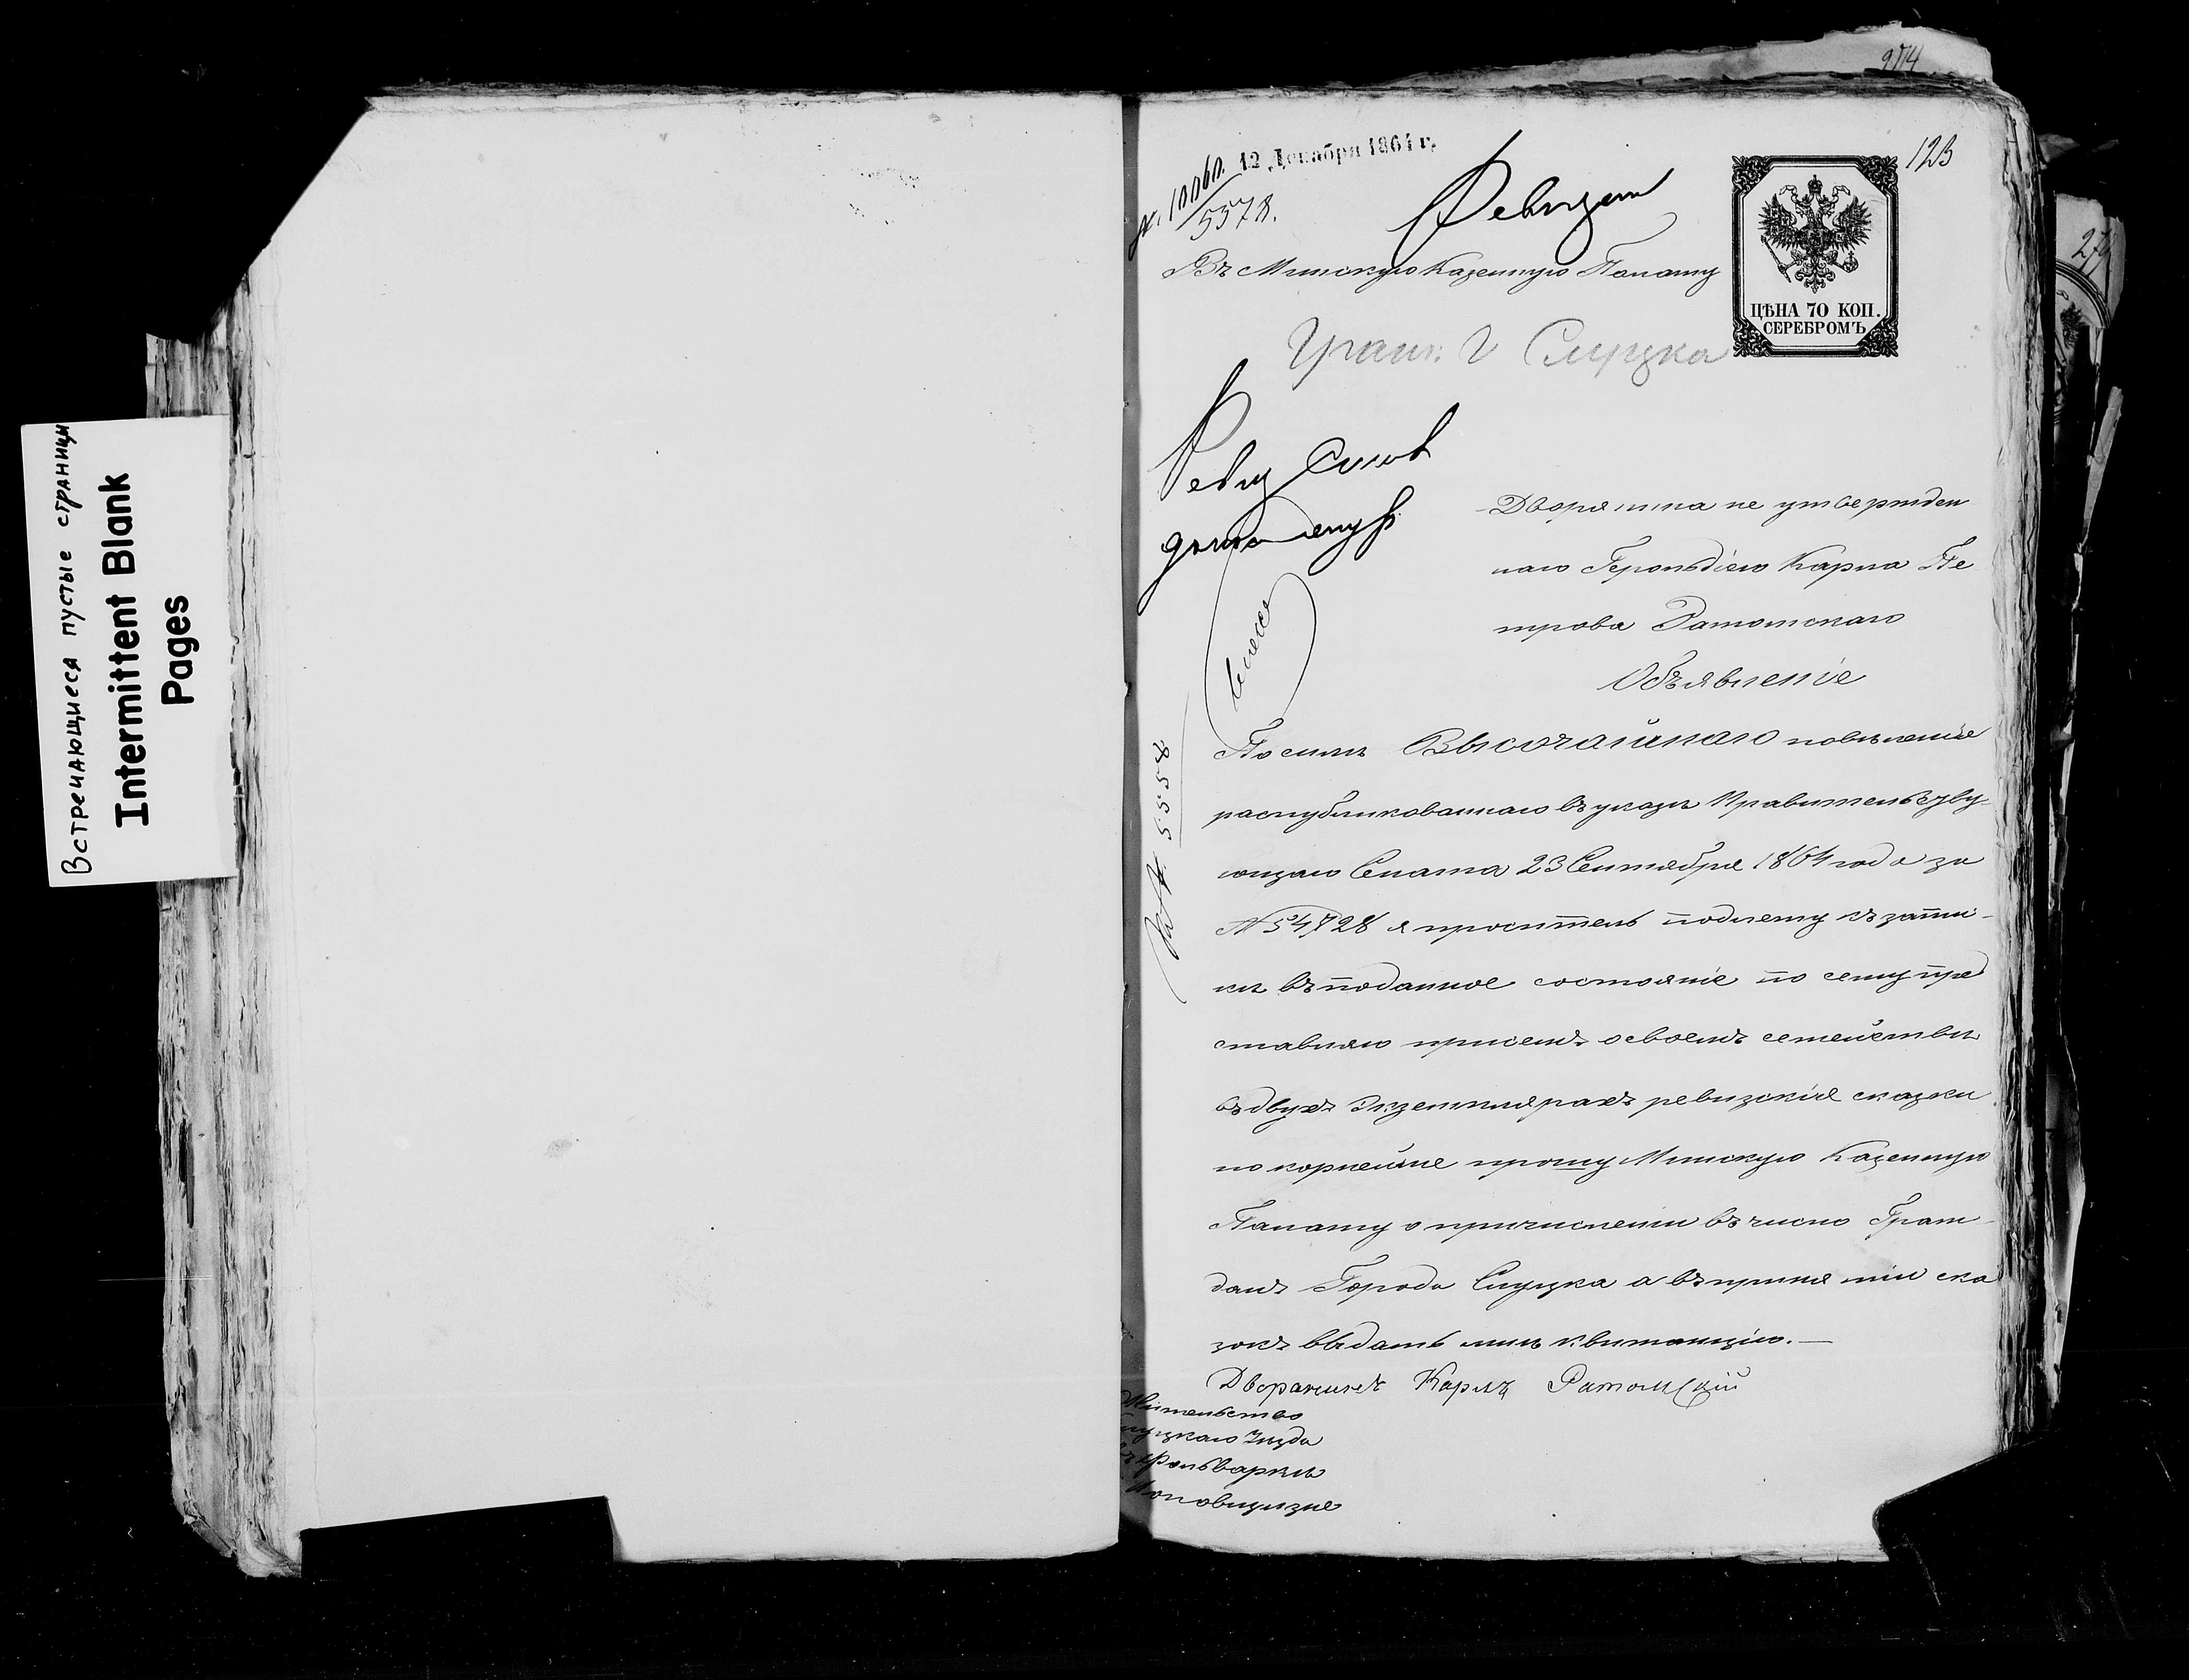 Встречающиеся пустые страницы
Intermittent Blank
Pages
274
123
12 Декабря 1864 г.
5578.
Въ Минскую Казенную Палату
ЦѢНА 70 КОП.
СЕРЕБРОМЪ
Граж. г Слуцка
Дворянина не утвержден
наго Герольдіею Карла Пе
трова Ратомскаго
Объявленіе
По силѣ Высочайшаго повѣленія
распубликованнаго въ указѣ Правительству-
ющаго Сената 23 Сентября 1864 года за
№ 54,728 я проситель подлежу къ запи-
кѣ въ поданное состояніе по сему пред
ставляю присемъ о своемъ семействѣ
въ двухъ экземплярахъ ревизскія сказки
покорнейше прошу Минскую Казенную
Палату о причисленіи въ число Граж-
данъ Города Слуцка а въ принятіи ска
зокъ выдать мнѣ квитанцію.—
Дворанинъ Карлъ Ратомскій
5558
Жительство
Слуцкаго Уѣзда
въ Фольваркѣ